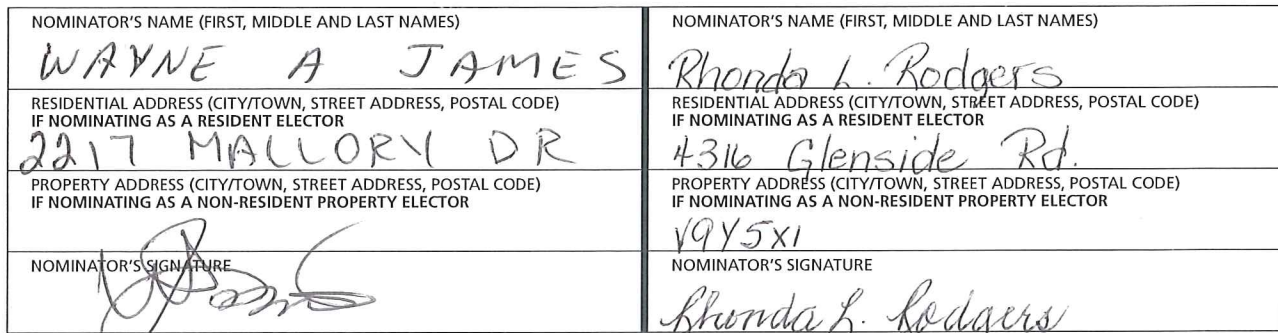 NOMINATOR'S NAME (FIRST, MIDDLE AND LAST NAMES)
WAYNE A JAMES
RESIDENTIAL ADDRESS (CITY/TOWN, STREET ADDRESS, POSTAL CODE)
IF NOMINATING AS A RESIDENT ELECTOR
2217 MALLORY DR
PROPERTY ADDRESS (CITY/TOWN, STREET ADDRESS, POSTAL CODE)
IF NOMINATING AS A NON-RESIDENT PROPERTY ELECTOR
NOMINATOR'S SIGNATURE
NOMINATOR'S NAME (FIRST, MIDDLE AND LAST NAMES)
Rhonda L. Rodgers
RESIDENTIAL ADDRESS (CITY/TOWN, STREET ADDRESS, POSTAL CODE)
IF NOMINATING AS A RESIDENT ELECTOR
4316 Glenside Rd.
PROPERTY ADDRESS (CITY/TOWN, STREET ADDRESS, POSTAL CODE)
IF NOMINATING AS A NON-RESIDENT PROPERTY ELECTOR
V9Y5X1
NOMINATOR'S SIGNATURE
Rhonda L. Rodgers